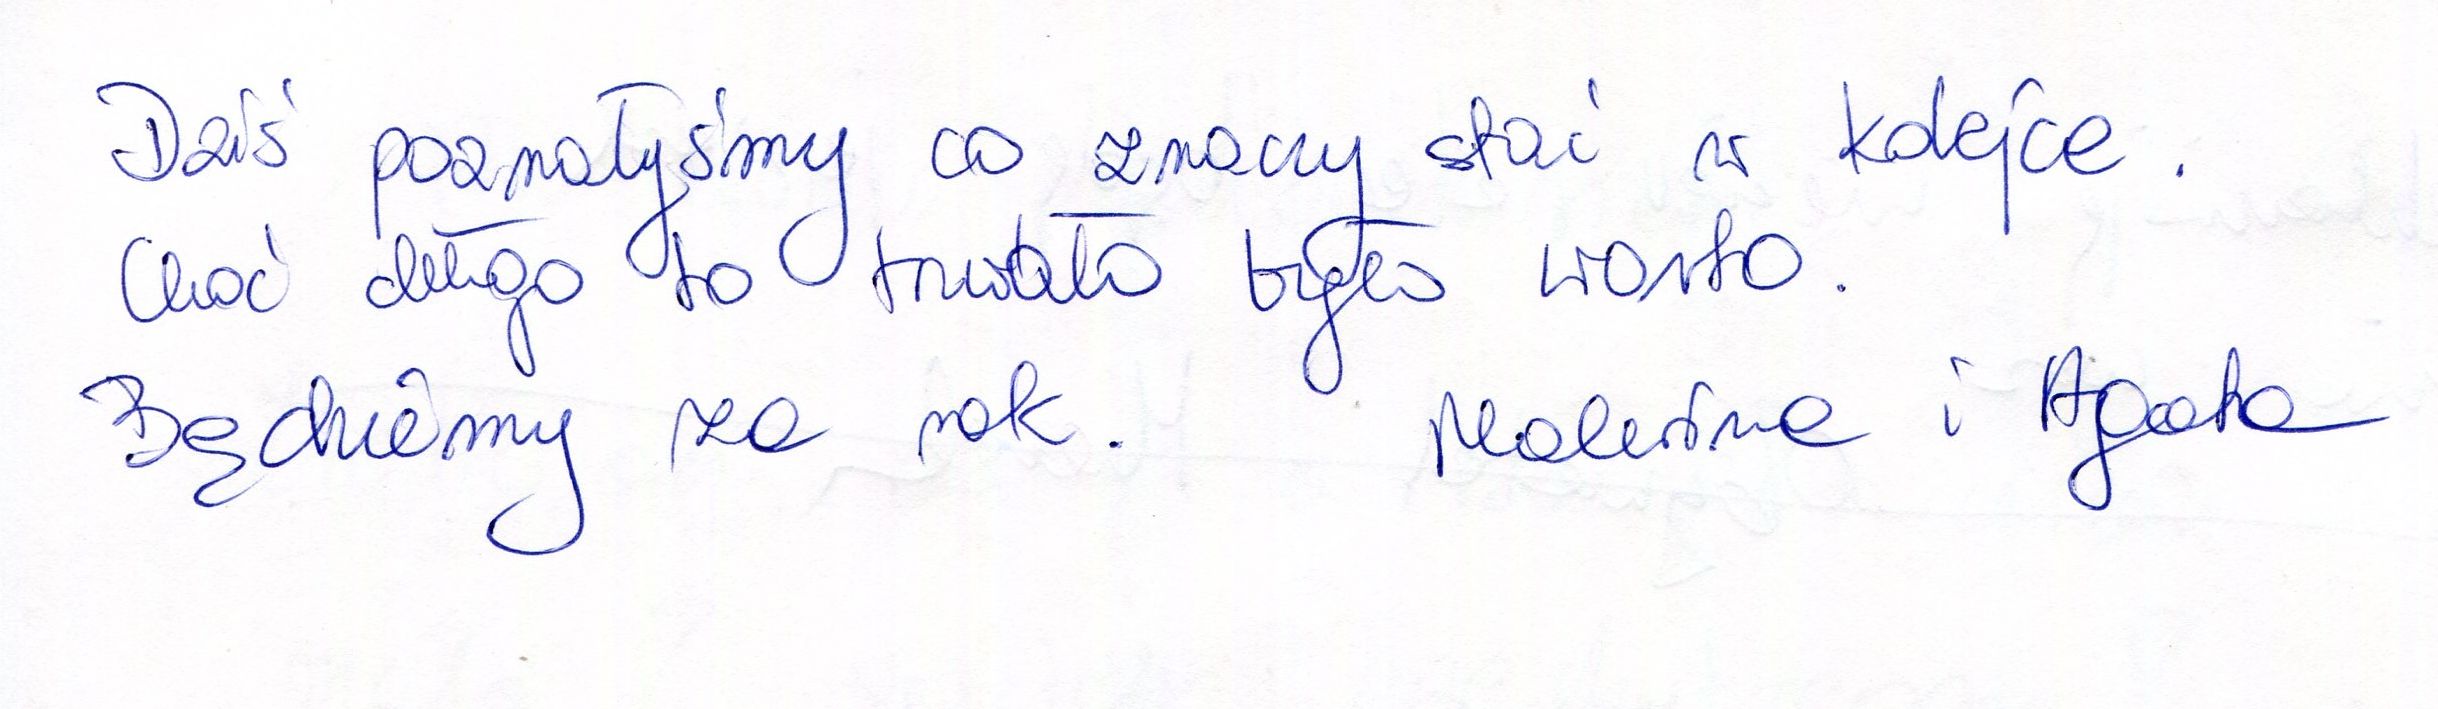 Dziś poznałyśmy co znaczy stać w kolejce.
Choć długo to trwało było warto.
Będziemy za rok. Malwina i Agata